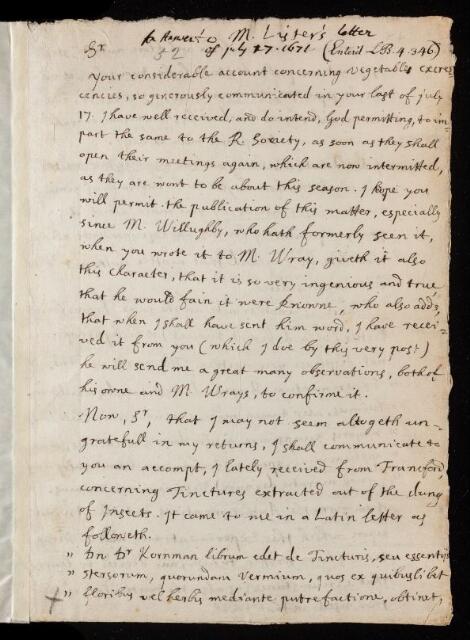 An Answer to M. Lister's letter
52 of july 17. 1671 (Enter'd LB. 4. 346)
Sr
Your considerable account concerning vegetable excres-
cencies, so generously communicated in your last of july
17. I have well received, and do intend, God permitting, to im-
part the same to the R. Society, as soon as they shall
open their meetings again, which are now intermitted,
as they are wont to be about this season. I hope you
will permit the publication of this matter, especially
since M. Willughby, who hath formerly seen it,
when you wrote it to M. Wray, giveth it also
this character, that it is so very ingenious and true,
that he would fain it were knowne, who also adds,
that when I shall have sent him word, I have recei-
ved it from you (which I doe by this very post)
he will send me a great many observations, both of
his owne and M. Wrays, to confirme it.
Now, Sr, that I may not seem altogeth un-
gratefull in my returns, I shall communicate to
you an accompt, I lately received from Francford,
concerning Tinctures extracted out of the dung
of Insects. It came to me in a Latin letter as
followeth.
" Dn Dr Kornman librum edet de Tincturis, seu essentijs
" stercorum, quorundam Vermium, quos ex quibuslibet
" floribus vel herbis mediante putrefactione, obtinet,